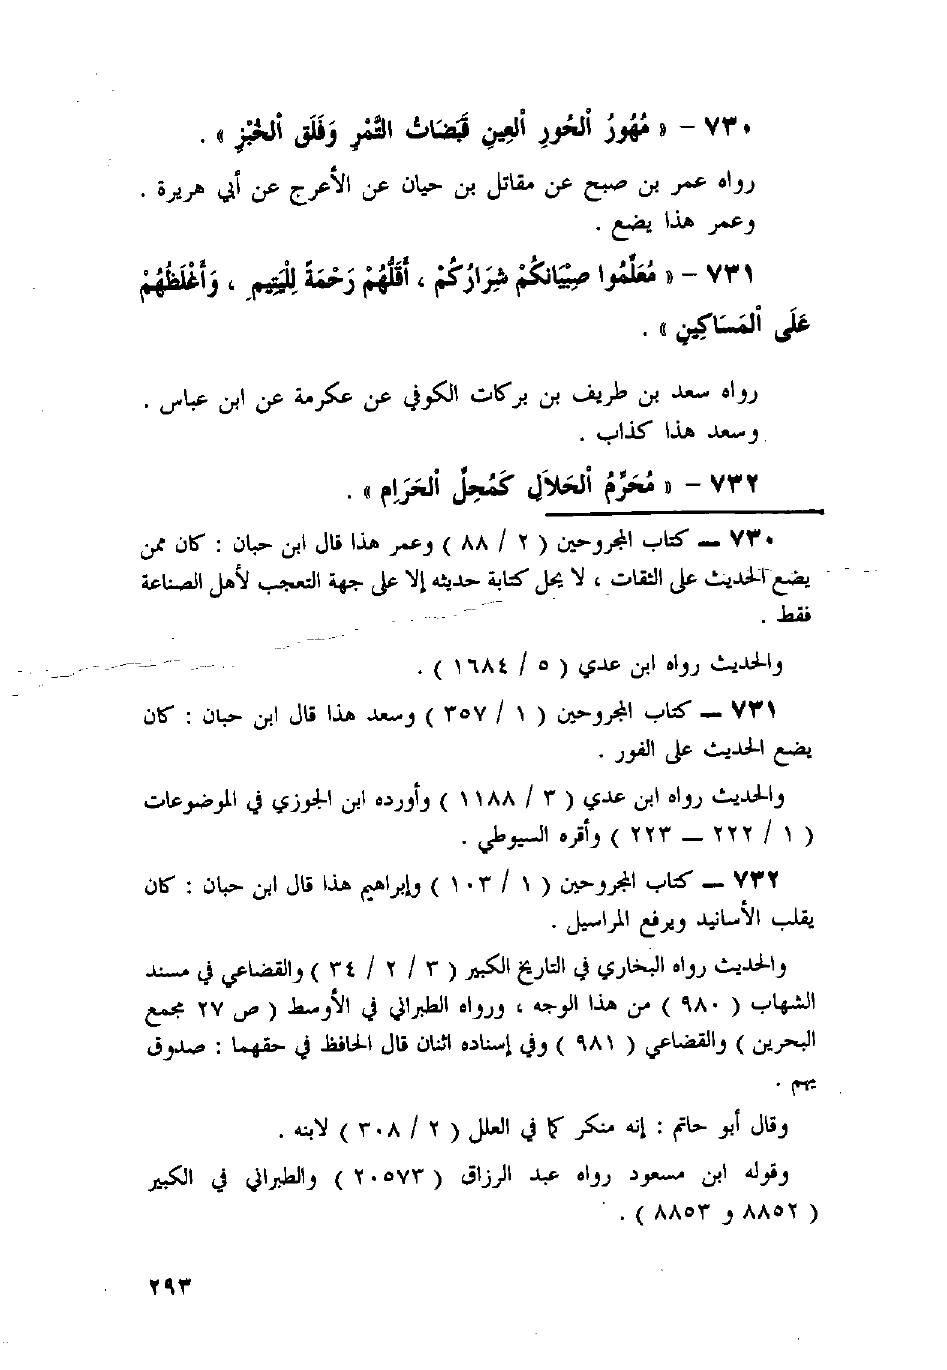 ٧٣٠ – « مُهُورُ ٱلحُورِ ٱلعِينِ قَبَضَاتُ التَّمْرِ وَفَلَق ٱلخُبْزِ » .
رواه عمر بن صبح عن مقاتل بن حيان عن الأعرج عن أبي هريرة .
وعمر هذا يضع .
٧٣١ – « مُعَلِّمُوا صِبْيَانكُمْ شِرَارُكُمْ ، أَقَلُّهُمْ رَحْمَةً لِلْيَتِيمِ ، وَأَغْلَظُهُمْ
عَلَى ٱلمَسَاكِينِ » .
رواه سعد بن طريف بن بركات الكوفي عن عكرمة عن ابن عباس .
وسعد هذا كذاب .
٧٣٢ – « مُحَرِّمُ ٱلحَلاَلِ كَمُحِلِّ ٱلحَرَامِ » .
٧٣٠ – كتاب المجروحين ( ٢ / ٨٨ ) وعمر هذا قال ابن حبان : كان ممن
يضع الحديث على الثقات ، لا يحل كتابة حديثه إلا على جهة التعجب لأهل الصناعة
فقط .
والحديث رواه ابن عدي ( ٥ / ١٦٨٤ ) .
٧٣١ – كتاب المجروحين ( ١ / ٣٥٧ ) وسعد هذا قال ابن حبان : كان
يضع الحديث على الفور .
والحديث رواه ابن عدي ( ٣ / ١١٨٨ ) وأورده ابن الجوزي في الموضوعات
( ١ / ٢٢٢ – ٢٢٣ ) وأقره السيوطي .
٧٣٢ – كتاب المجروحين ( ١ / ١٠٣ ) وإبراهيم هذا قال ابن حبان : كان
يقلب الأسانيد ويرفع المراسيل .
والحديث رواه البخاري في التاريخ الكبير ( ٣ / ٢ / ٣٤ ) والقضاعي في مسند
الشهاب ( ٩٨٠ ) من هذا الوجه ، ورواه الطبراني في الأوسط ( ص ٢٧ مجمع
البحرين ) والقضاعي ( ٩٨١ ) وفي إسناده اثنان قال الحافظ في حقهما : صدوق
يهم .
وقال أبو حاتم : إنه منكر كما في العلل ( ٢ / ٣٠٨ ) لابنه .
وقوله ابن مسعود رواه عبد الرزاق ( ٢٠٥٧٣ ) والطبراني في الكبير
( ٨٨٥٢ و ٨٨٥٣ ) .
٢٩٣